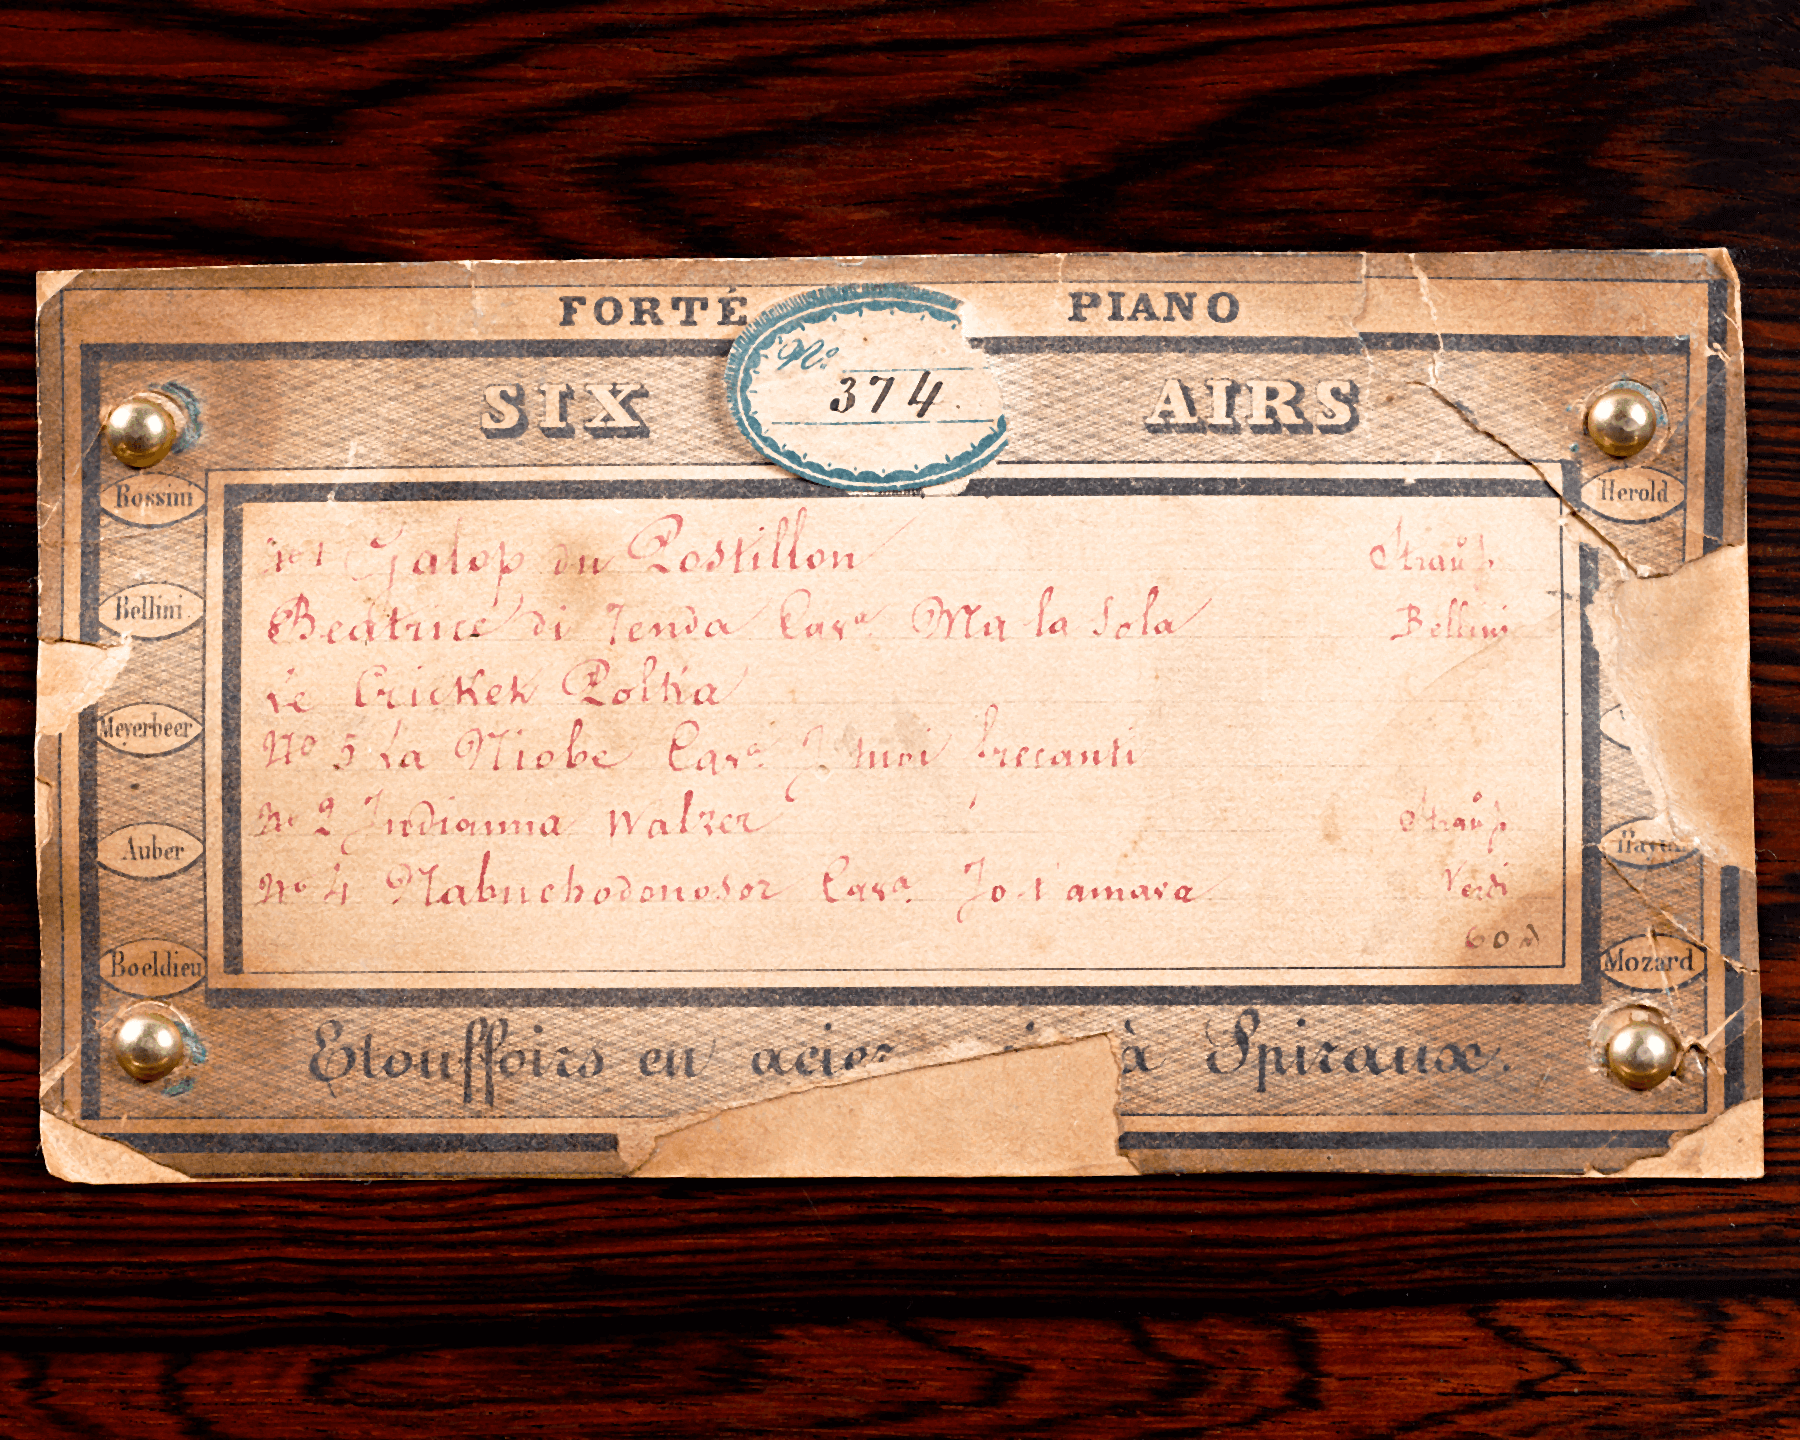 FORTÉ PIANO
SIX AIRS
No. 374
Rossini
Bellini
Meyerbeer
Auber
Boeldieu
Herold
Mozard
No 1 Galop du Postillon Strauß
Beatrice di Tenda Cava Ma la Sola Bellini
Le Cricket Polka
No 5 La Niobe Cava I tuoi frecanti
No 2 Indianna Walzer Strauß
No 4 Nabuchodonosor Cava Io t'amava Verdi
60
Etouffoirs en acier à Spiraux.